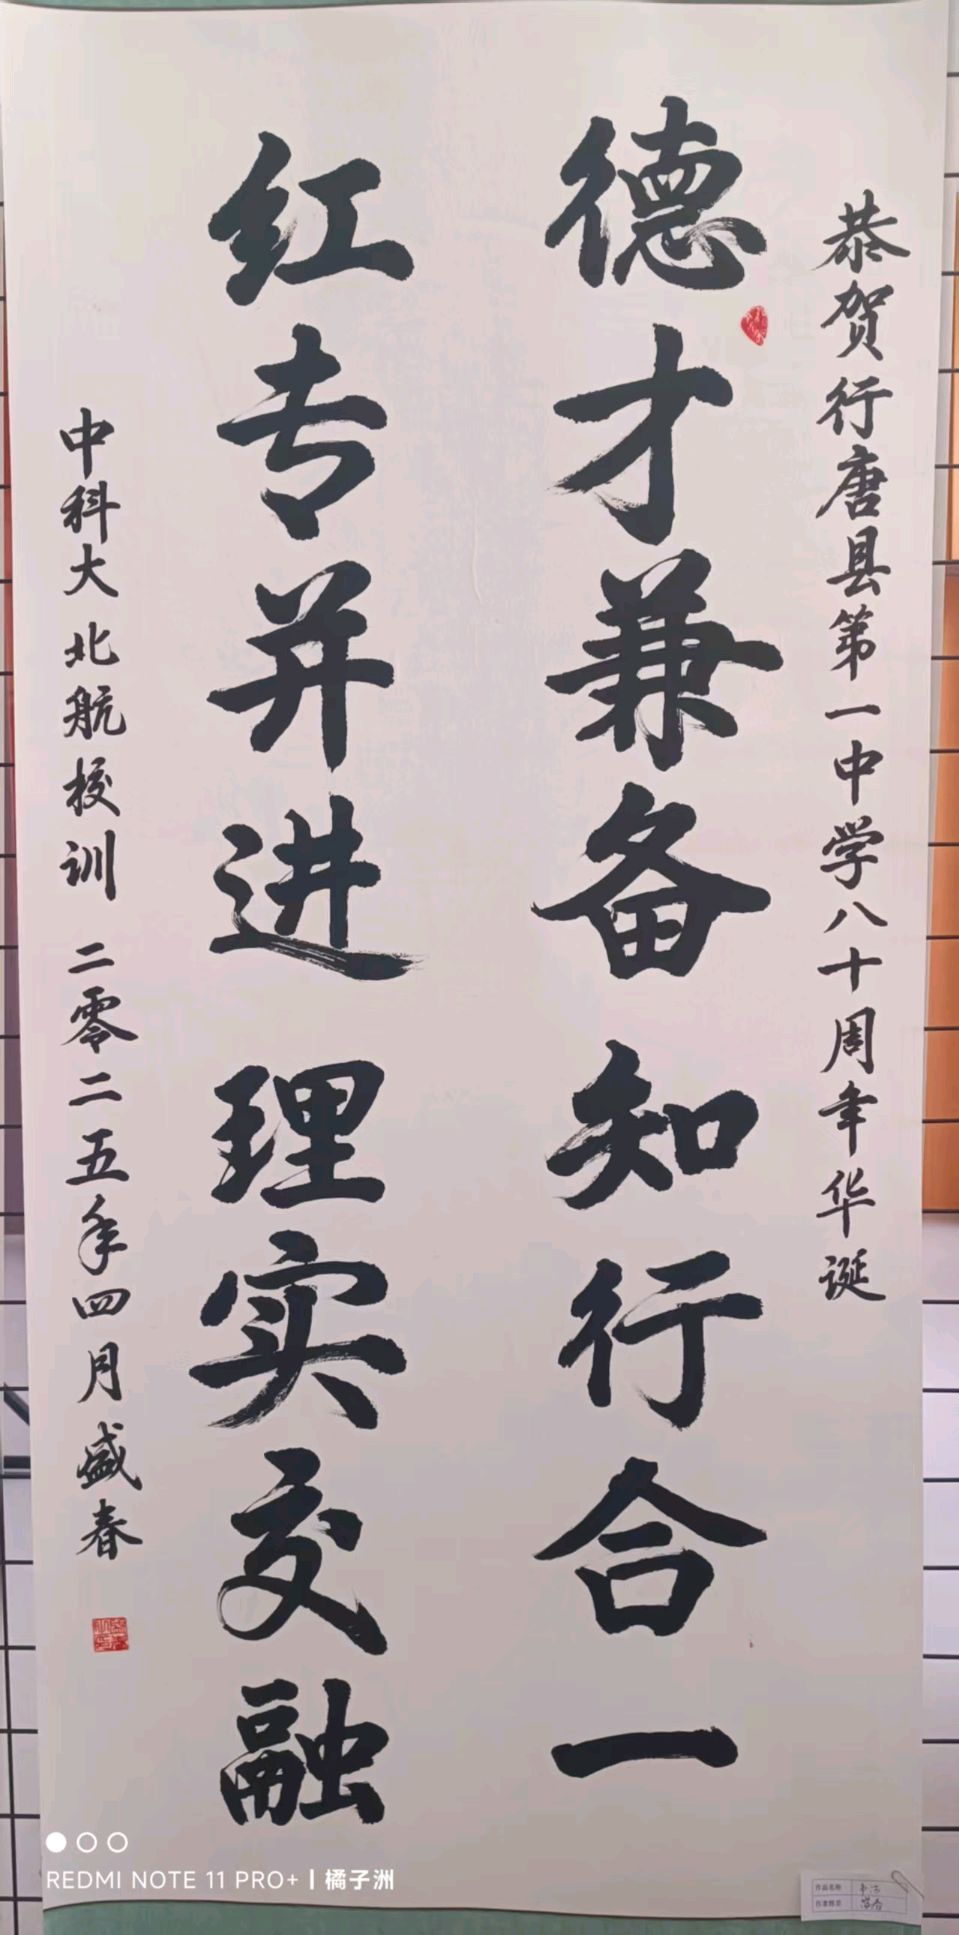 恭贺行唐县第一中学八十周年华诞
德才兼备知行合一
红专并进理实交融
中科大北航校训 二零二五年四月盛春
REDMI NOTE 11 PRO+ | 橘子洲
作品名称
作者姓名